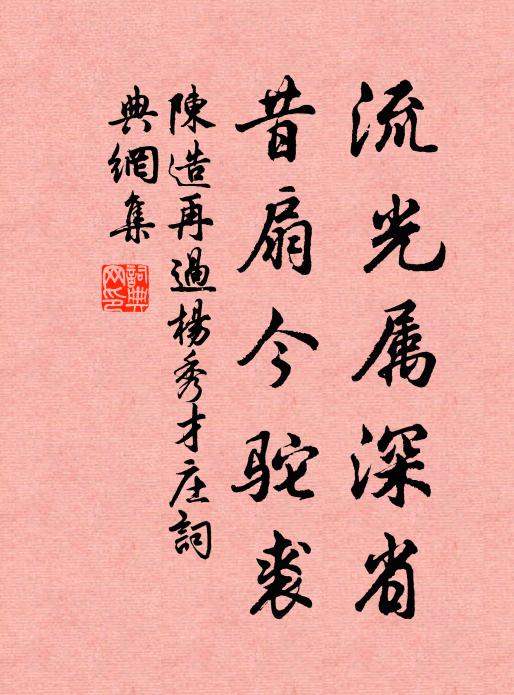 流光属深省
昔扇今駝裘
陳造再過楊秀才庄詞
典網集
詞典網印